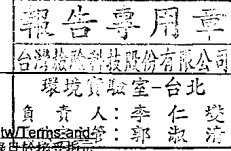 報告專用章
台灣檢驗科技股份有限公司
環境實驗室-台北
負責人：李仁燮
tw/Terms-and-
管：郭淑清